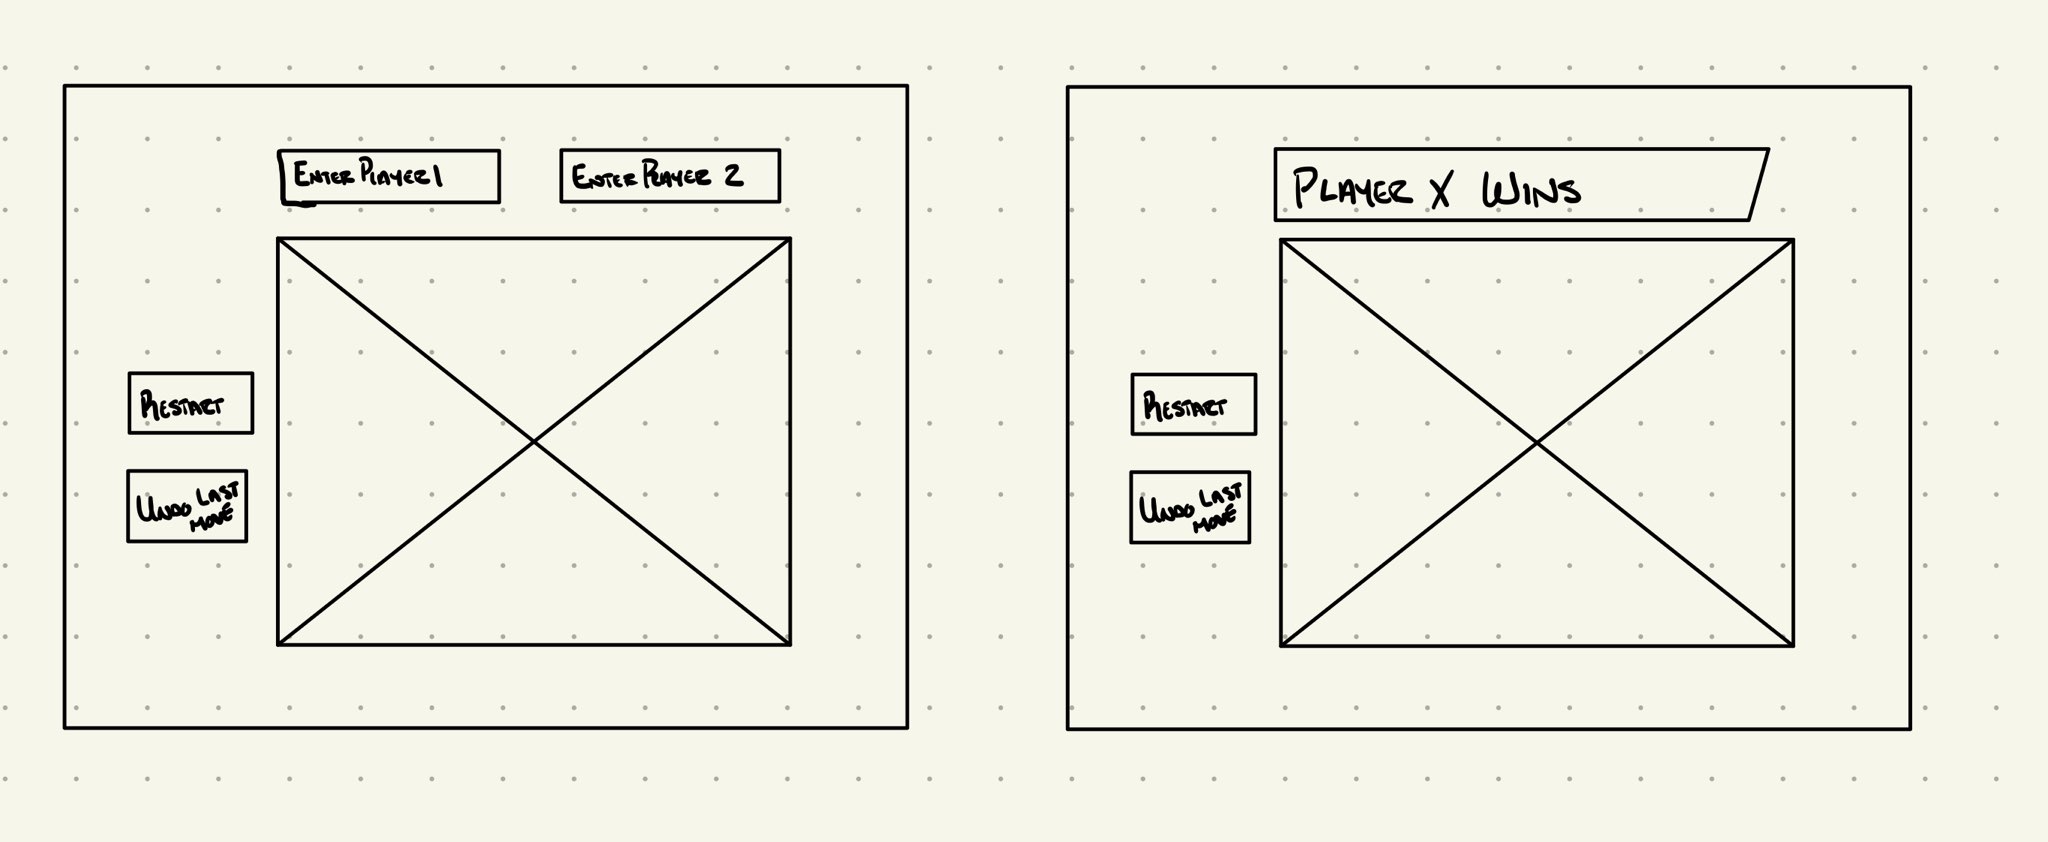 Enter Player 1
Enter Player 2
Restart
Undo Last
Move
Player X Wins
Restart
Undo Last
Move